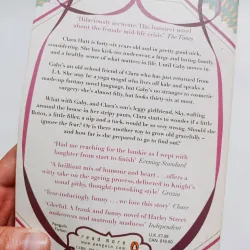 'Hilariously
about the female mid-life crisis' The Times
Clara Hart is forty-six years old and in pretty good nick,
considering. She has kick-ass underwear, a large and loving family
and a healthy sense of what matters in life. Until Gaby moves in.
Gaby's an old friend of Clara who has just returned from
LA. She may be a yoga mogul who lives off kale and speaks a
made-up fantasy novel language, but Gaby's no stranger to cosmetic
surgery: she's almost fifty, but looks thirty-six at most.
What with Gaby, and Clara's son's leggy girlfriend, Sky, wafting
around the house in her stripy pants, Clara starts to wonder if a little
Botox, a little filler, a nip and a tuck, would be so very wrong. Should she
ignore the fear? Or is there another way to grow old gracefully –
and how the hell are you prepared to go to find out?
'Had me reaching for the hankie as I wept with
laughter from start to finish' Evening Standard
'A brilliant mix of humour and heart ... offers a witty
take on the ageing process, delivered in Knight's
usual pithy, thought-provoking style' Grazia
'Tear-inducingly funny ... we love this story' Closer
'Gleeful. A frank and funny novel of Harley Street
makeovers and motherly madness' Independent
read more
Penguin
U.K. £7.99
CAN. $19.99